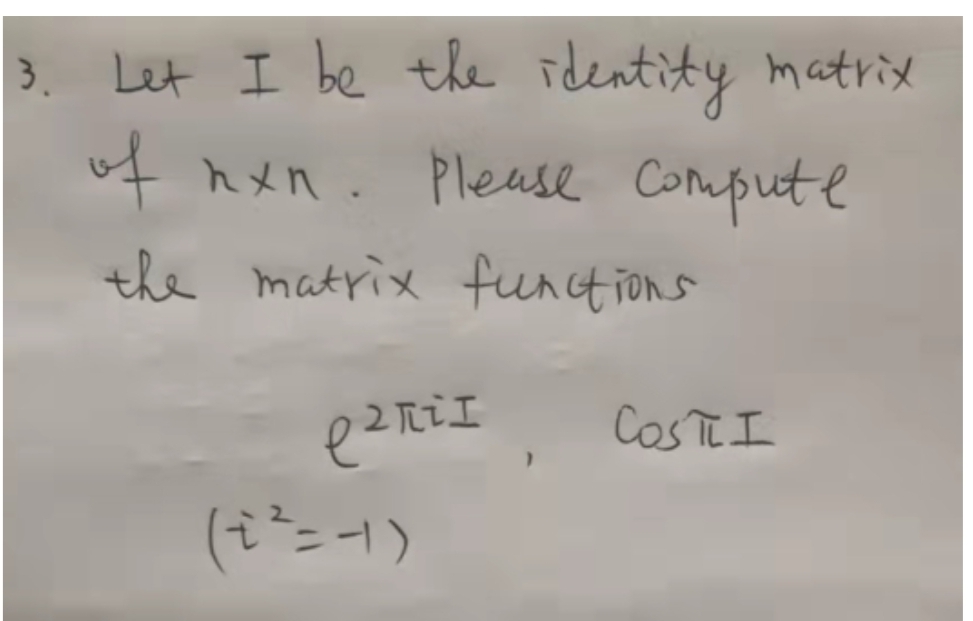 3. Let I be the identity matrix
of n×n. Please compute
the matrix functions
e^{2πiI}, Cos πI
(i²=-1)